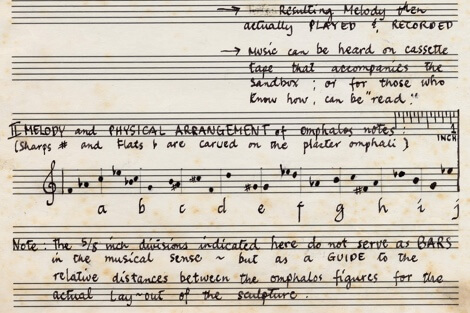 → Resulting Melody then
actually PLAYED & RECORDED
→ Music can be heard on cassette
tape that accompanies the
Sandbox ; or for those who
know how, can be "read."
II MELODY and PHYSICAL ARRANGEMENT of omphalos notes :
1 INCH
(Sharps # and Flats ♭ are carved on the plaster omphali)
a b c d e f g h i j
Note : The 5/8 inch divisions indicated here do not serve as BARS
in the musical sense ~ but as a GUIDE to the
relative distances between the omphalos figures for the
actual lay-out of the sculpture.